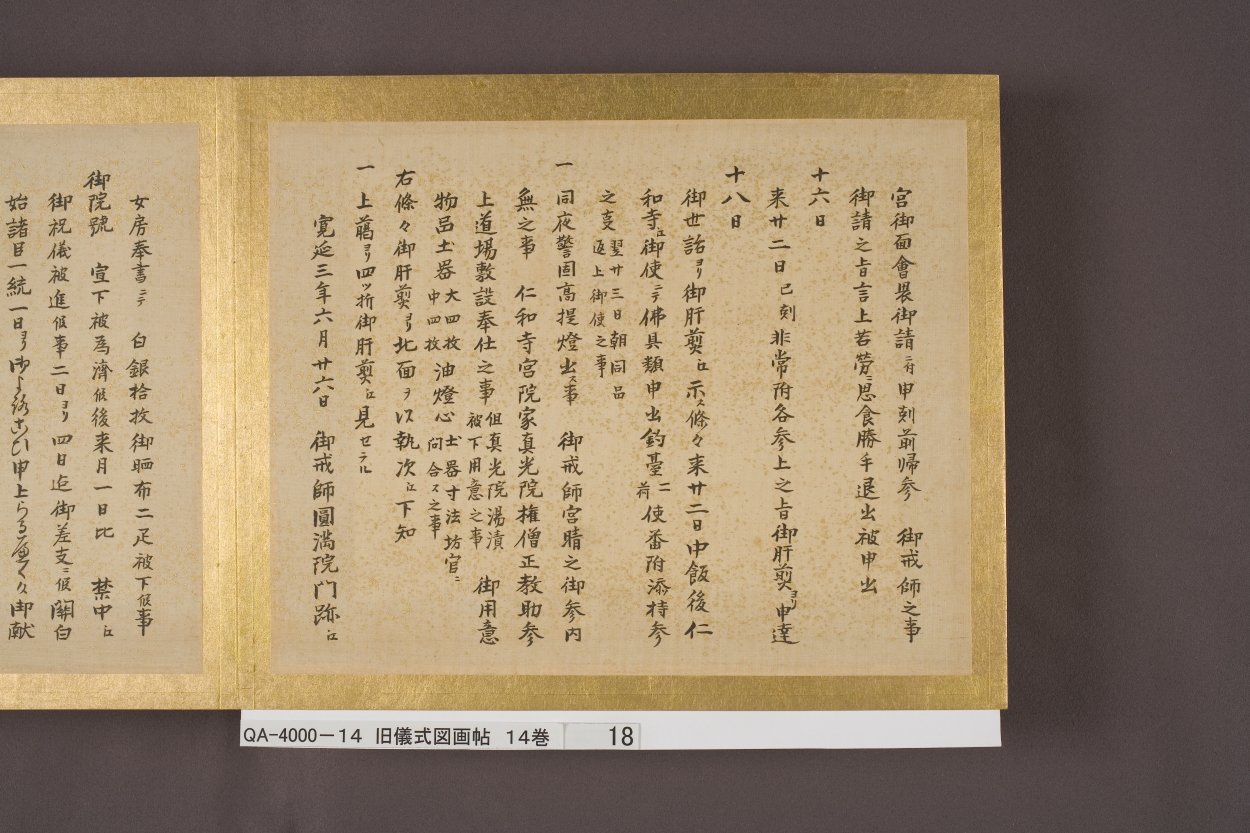 宮御面會畏御請ニ付申刻前帰参　御戒師之事
御請之旨言上若勞ニ思食勝手退出被申出
十六日
来廿二日巳刻非常附各参上之旨御肝煎ヨリ申達
十八日
御世話ヨリ御肝煎江示ス條々来廿二日中飯後仁
和寺江御使ニテ佛具類申出釣臺二荷使番附添持参
之事 翌廿三日朝同品
返上御使之事
一 同夜警固高提燈出ス事　御戒師宮晴之御参内
無之事　仁和寺宮院家真光院権僧正教助参
上道場敷設奉仕之事 但真光院湯漬
被下用意之事 御用意
物品土器 大四枚
中四枚 油燈心 土器寸法坊官ニ
問合ス之事
右條々御肝煎ヨリ北面ヲ以執次江下知
一 上臈ヨリ四ツ折御肝煎江見セテル
寛延三年六月廿六日　御戒師圓満院門跡江
女房奉書ニテ　白銀拾枚御晒布二疋被下候事
御院號　宣下被為濟候後来月一日比　禁中江
御祝儀被進候事二日ヨリ四日迄御差支ニ候關白
始諸臣一統一日ヨリ
申上
御献
QA-4000-14　旧儀式図画帖　14巻　18